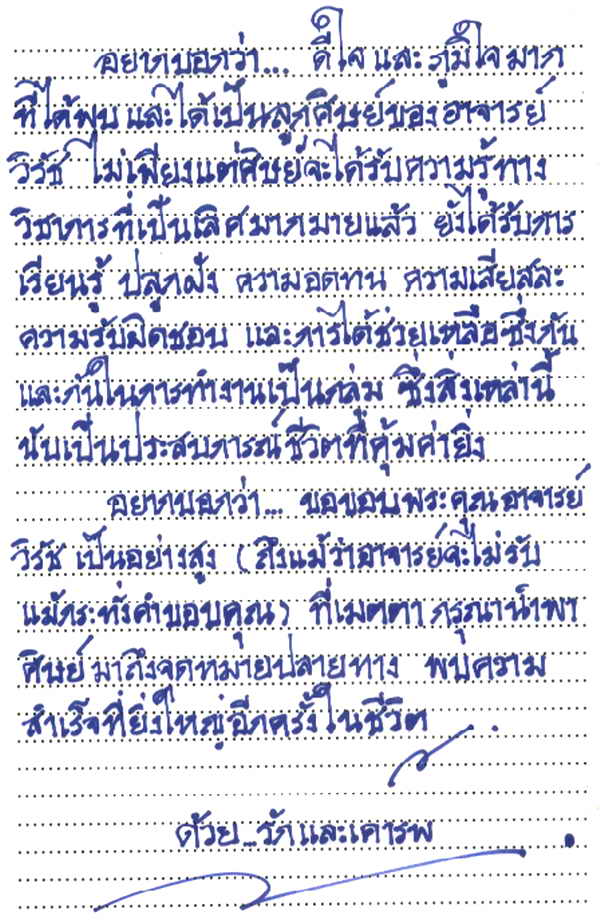 อยากบอกว่า... ดีใจ และ ภูมิใจมาก
ที่ได้พบ และได้เป็นลูกศิษย์ของอาจารย์
วิรัช ไม่เพียงแต่ศิษย์จะได้รับความรู้ทาง
วิชาการที่เป็นเลิศมากมายแล้ว ยังได้รับการ
เรียนรู้ ปลูกฝัง ความอดทน ความเสียสละ
ความรับผิดชอบ และการได้ช่วยเหลือซึ่งกัน
และกันในการทำงานเป็นกลุ่ม ซึ่งสิ่งเหล่านี้
นับเป็นประสบการณ์ชีวิตที่คุ้มค่ายิ่ง
อยากบอกว่า... ขอขอบพระคุณอาจารย์
วิรัช เป็นอย่างสูง (ถึงแม้ว่าอาจารย์จะไม่รับ
แม้กระทั่งคำขอบคุณ) ที่เมตตา กรุณานำพา
ศิษย์มาถึงจุดหมายปลายทาง พบความ
สำเร็จที่ยิ่งใหญ่อีกครั้งในชีวิต
ด้วย...รักและเคารพ